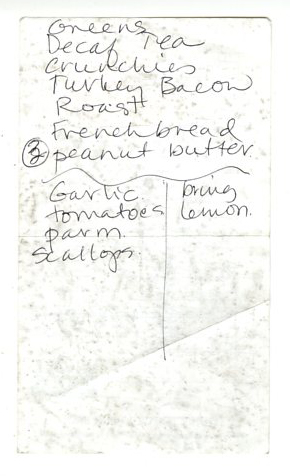 Greens
Decaf Tea
Crunchies
Turkey Bacon
Roast
French bread
② peanut butter
Garlic
tomatoes
parm.
scallops
bring
lemon.